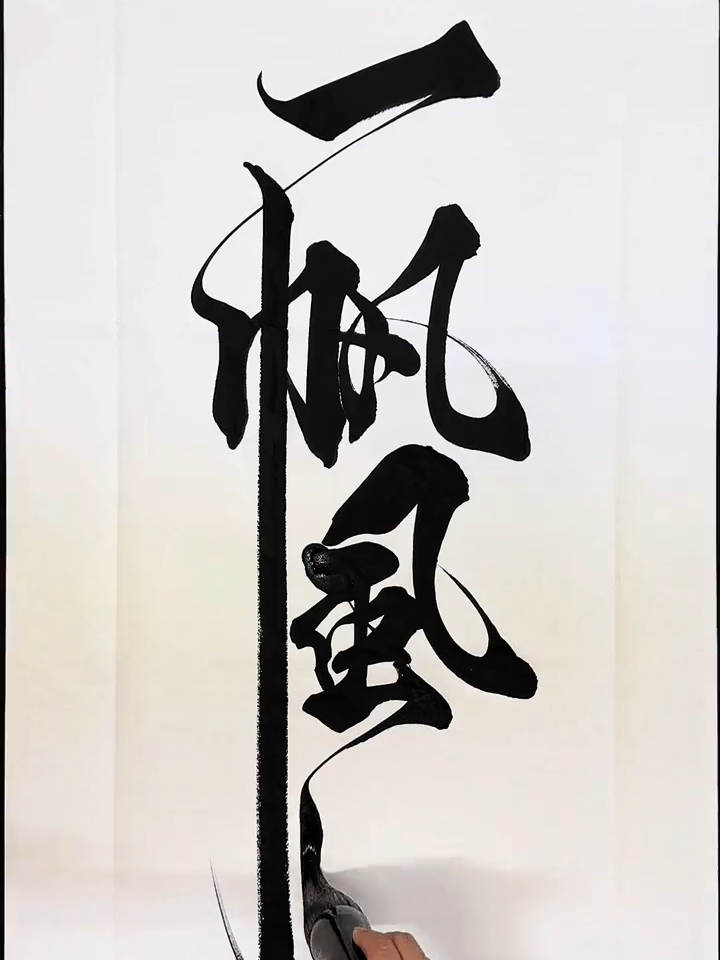 一帆風